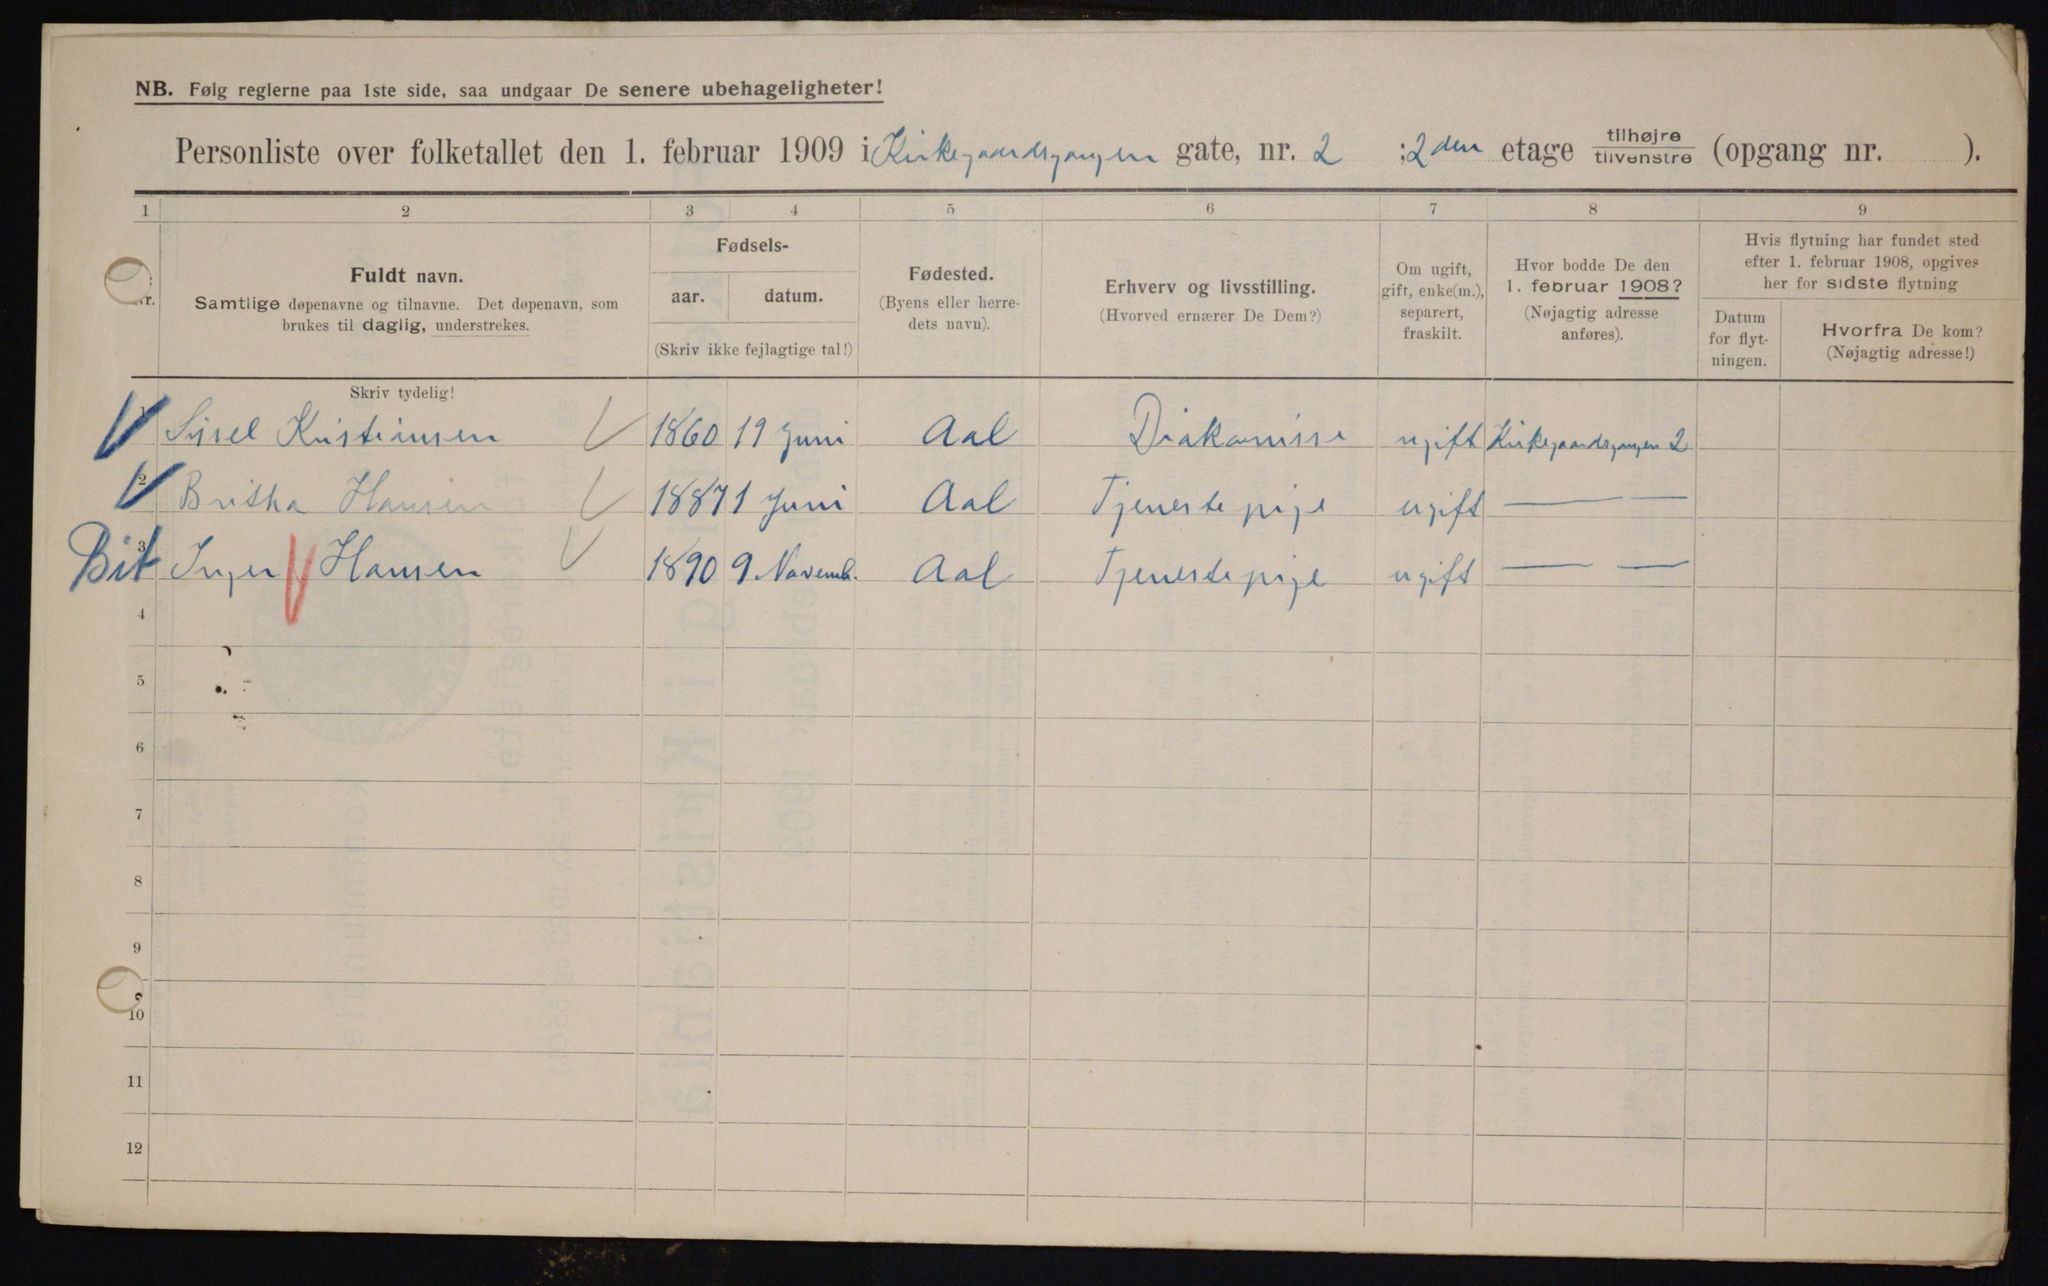 NB. Følg reglerne paa 1ste side, saa undgaar De senere ubehageligheter!
Personliste over folketallet den 1. februar 1909 i Kirkegaardsgangen gate, nr. 2 ; 2den etage tilhøjre/tilvenstre (opgang nr. ).
1 2 3 4 5 6 7 8 9
Fuldt navn.
Samtlige døpenavne og tilnavne. Det døpenavn, som
brukes til daglig, understrekes.
Fødsels-
aar. datum.
(Skriv ikke fejlagtige tal!)
Fødested.
(Byens eller herre-
dets navn).
Erhverv og livsstilling.
(Hvorved ernærer De Dem?)
Om ugift,
gift, enke(m.),
separert,
fraskilt.
Hvor bodde De den
1. februar 1908?
(Nøjagtig adresse
anføres).
Hvis flytning har fundet sted
efter 1. februar 1908, opgives
her for sidste flytning
Datum
for flyt-
ningen.
Hvorfra De kom?
(Nøjagtig adresse!)
Skriv tydelig!
1 Sissel Kristiansen 1860 19 Juni Aal Diakonisse ugift Kirkegaardsgangen 2
2 Britha Hansen 1887 1 Juni Aal Tjenestepige ugift — —
Bit 3 Inger Hansen 1890 9 Novemb. Aal Tjenestepige ugift — —
4
5
6
7
8
9
10
11
12